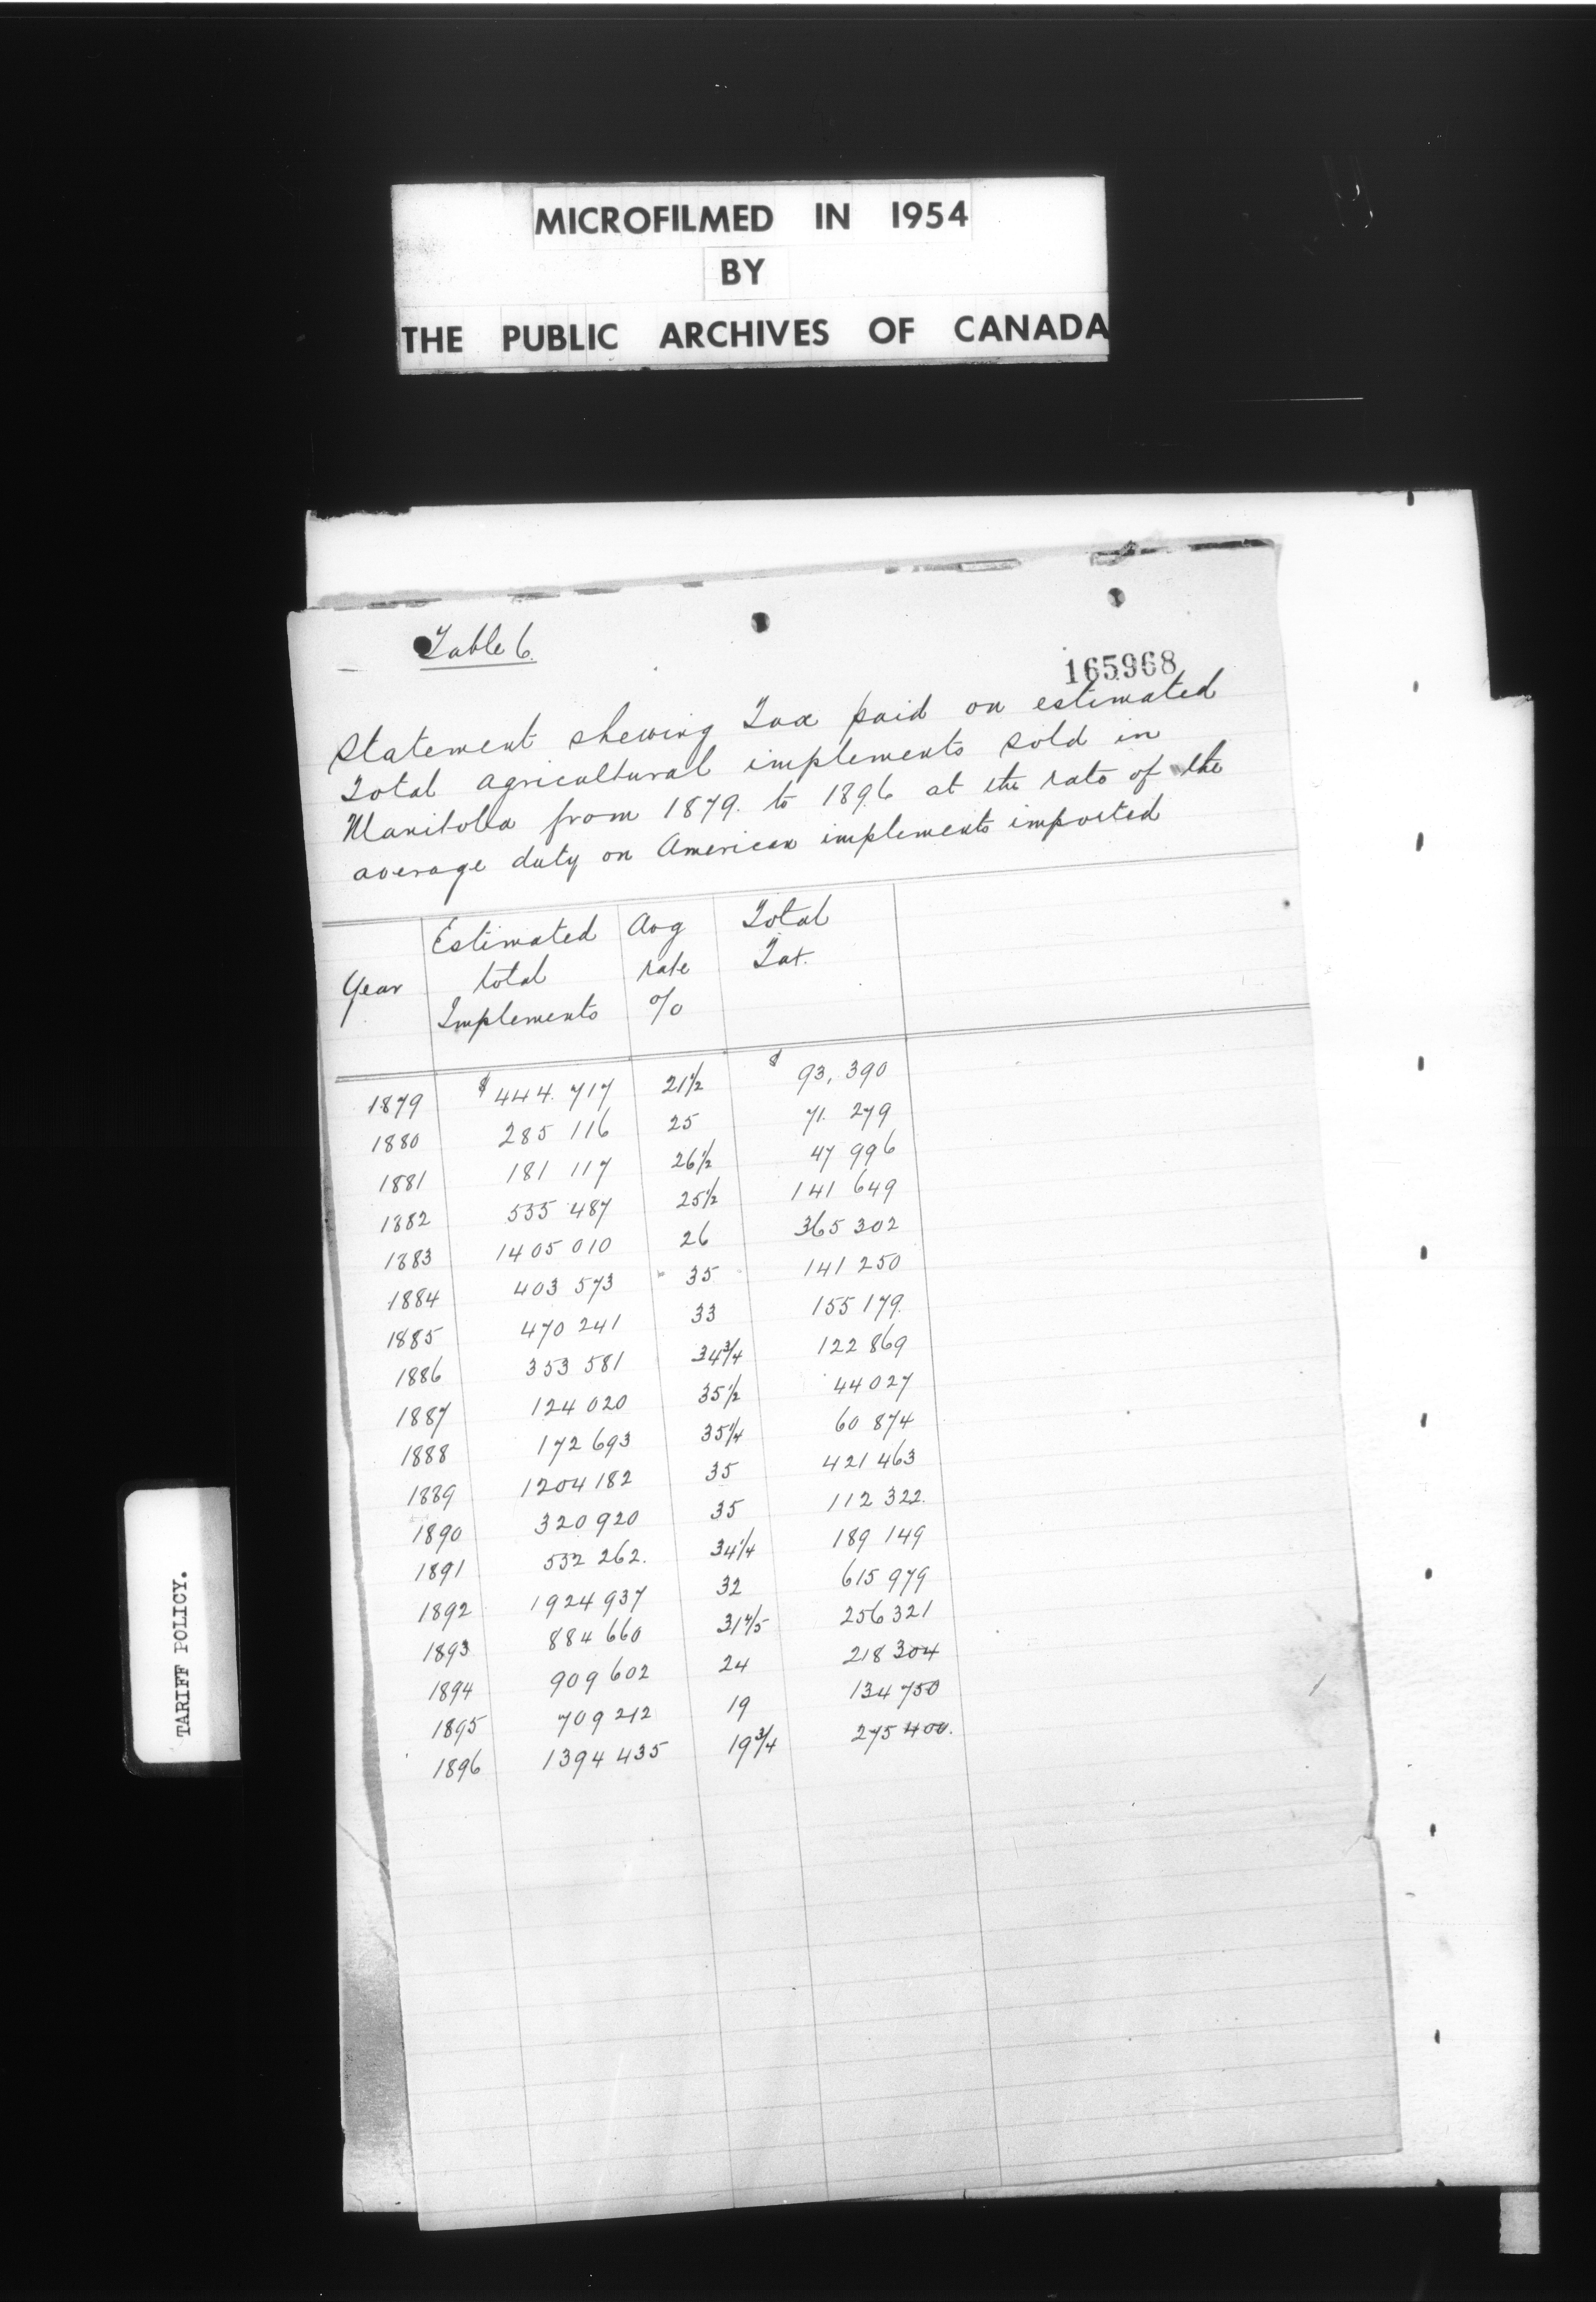 MICROFILMED IN 1954
BY
THE PUBLIC ARCHIVES OF CANADA
Table 6.
165968
Statement shewing Tax paid on estimated
Total agricultural implements sold in
Manitoba from 1879. to 1896 at the rate of the
average duty on American implements imported
Year Estimated total Implements Avg rate % Total Tax.
1879 $444.717 21½ $93,390
1880 285 116 25 71.279
1881 181 117 26½ 47 996
1882 535 487 25½ 141 649
1883 1405 010 26 365 302
1884 403 573 35 141 250
1885 470 241 33 155 179.
1886 353 581 34¾ 122 869
1887 124 020 35½ 44 027
1888 172 693 35¼ 60 874
1889 1204 182 35 421 463
1890 320 920 35 112 322.
1891 532 262. 34¼ 189 149
1892 1924 937 32 615 979
1893 884 660 31⅘ 256 321
1894 909 602 24 218 304
1895 709 212 19 134 750
1896 1394 435 19¾ 275 400.
TARIFF POLICY.